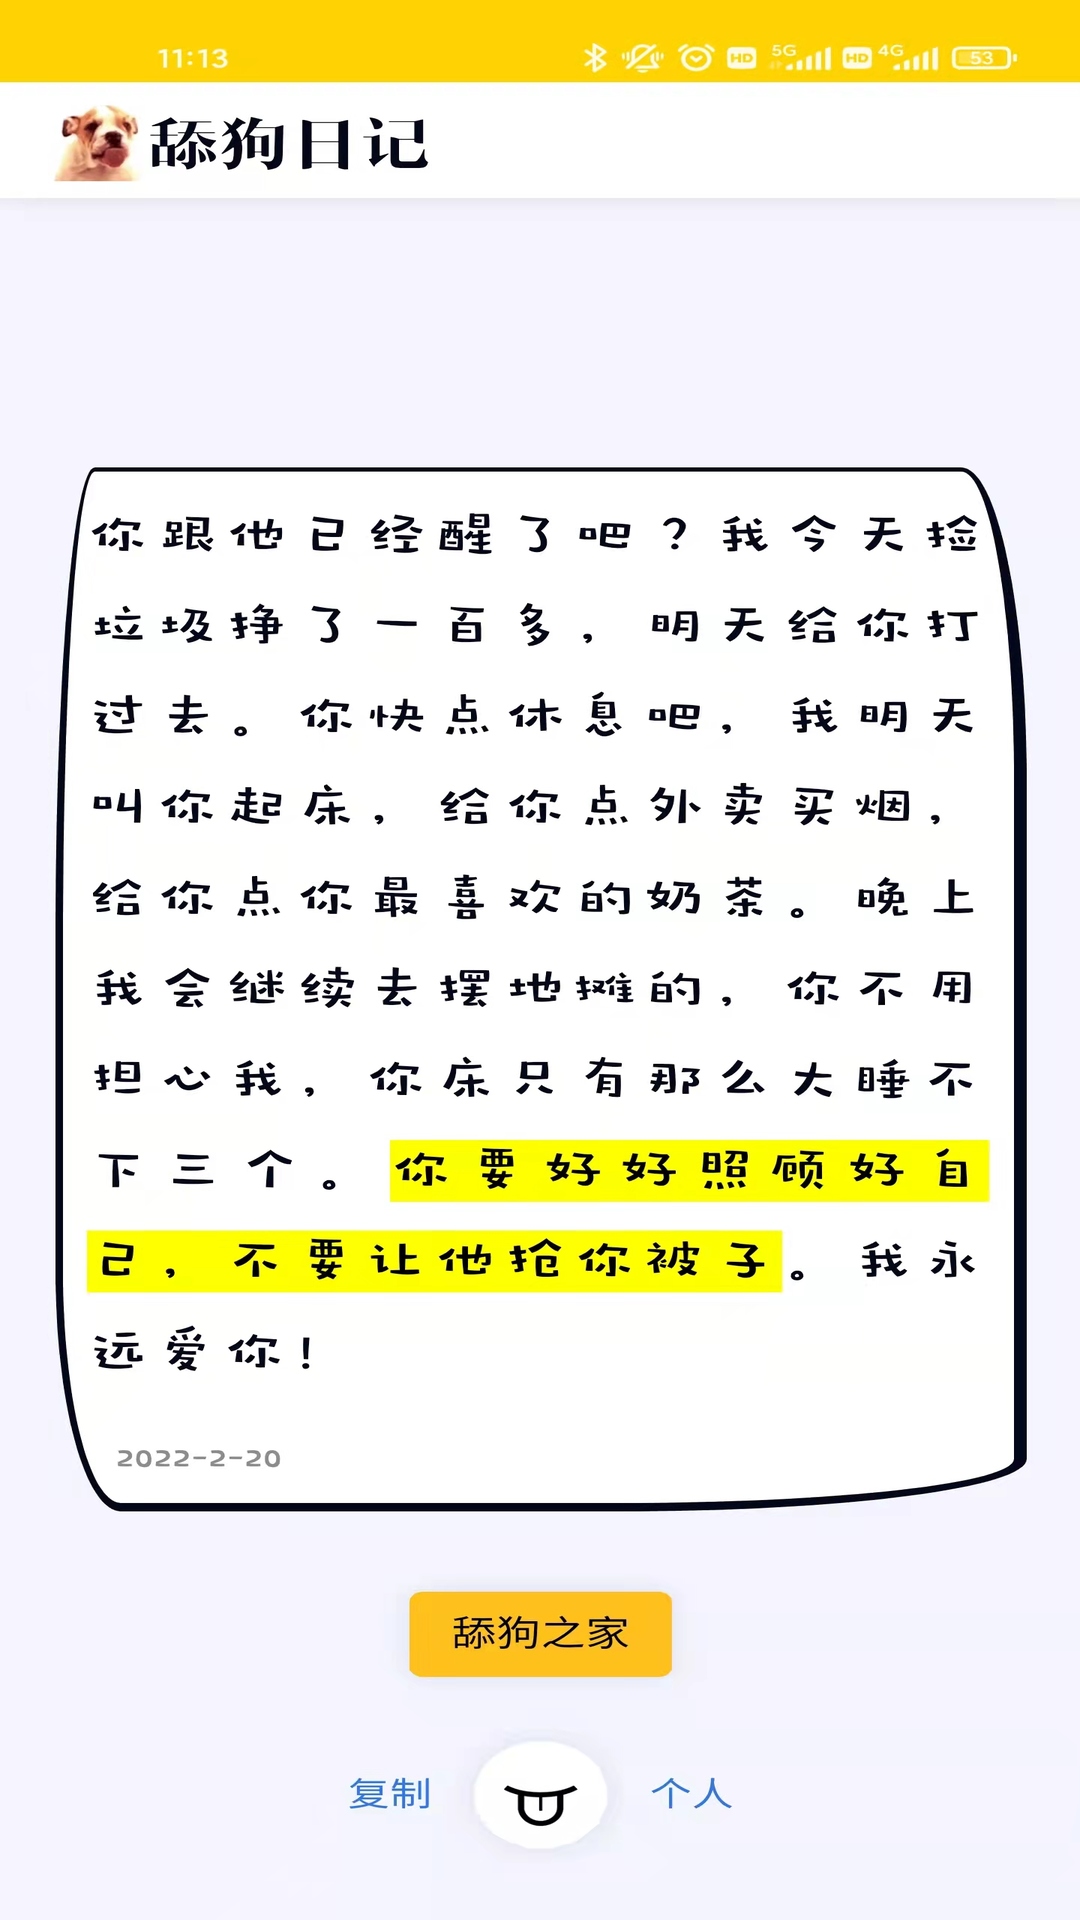 11:13
HD 5G HD 4G 53
舔狗日记
你跟他已经醒了吧？我今天捡
垃圾挣了一百多，明天给你打
过去。你快点休息吧，我明天
叫你起床，给你点外卖买烟，
给你点你最喜欢的奶茶。晚上
我会继续去摆地摊的，你不用
担心我，你床只有那么大睡不
下三个。你要好好照顾好自
己，不要让他抢你被子。我永
远爱你！
2022-2-20
舔狗之家
复制
个人